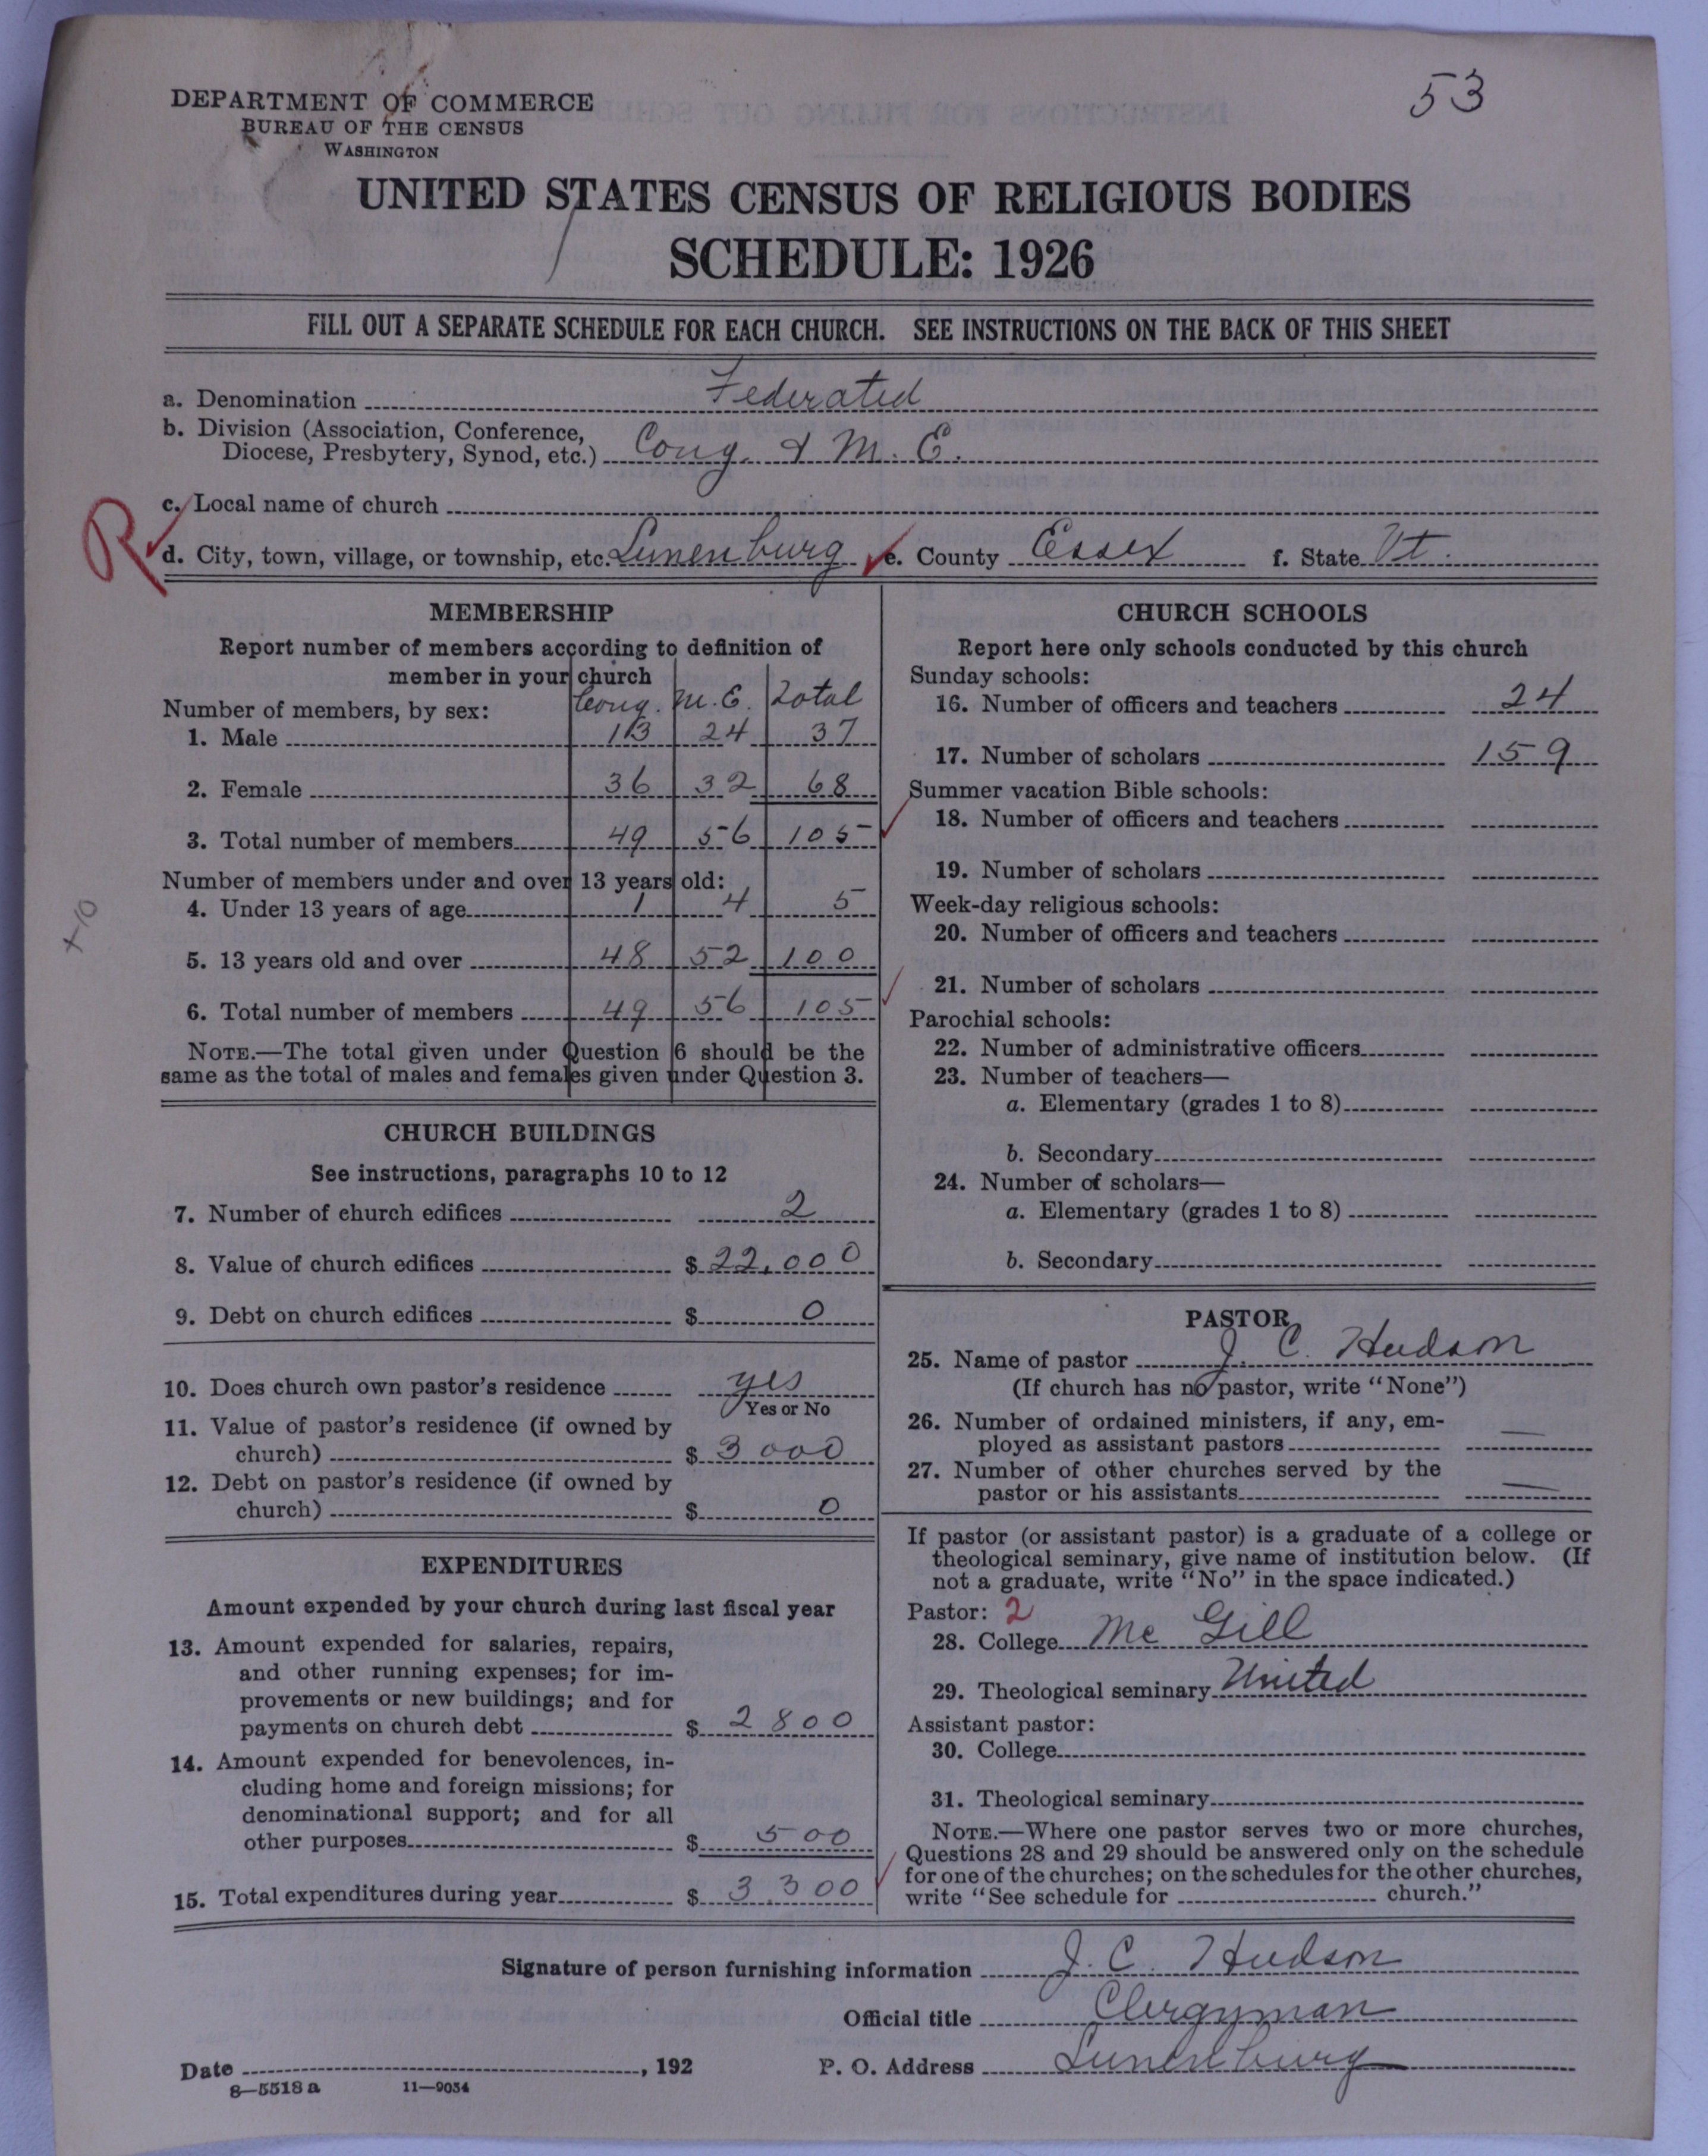 53
DEPARTMENT OF COMMERCE
BUREAU OF THE CENSUS
WASHINGTON
UNITED STATES CENSUS OF RELIGIOUS BODIES
SCHEDULE: 1926
FILL OUT A SEPARATE SCHEDULE FOR EACH CHURCH. SEE INSTRUCTIONS ON THE BACK OF THIS SHEET
a. Denomination Federated
b. Division (Association, Conference,
Diocese, Presbytery, Synod, etc.) Cong. & M. E.
R
c. Local name of church
d. City, town, village, or township, etc. Lunenburg e. County Essex f. State Vt.
MEMBERSHIP
Report number of members according to definition of
member in your church
Number of members, by sex: Cong. M.E. Total
1. Male 13 24 37
2. Female 36 32 68
3. Total number of members 49 56 105
Number of members under and over 13 years old:
4. Under 13 years of age 1 4 5
5. 13 years old and over 48 52 100
6. Total number of members 49 56 105
NOTE.—The total given under Question 6 should be the
same as the total of males and females given under Question 3.
CHURCH BUILDINGS
See instructions, paragraphs 10 to 12
7. Number of church edifices 2
8. Value of church edifices $ 22,000
9. Debt on church edifices $ 0
10. Does church own pastor's residence yes
Yes or No
11. Value of pastor's residence (if owned by
church) $ 3000
12. Debt on pastor's residence (if owned by
church) $ 0
EXPENDITURES
Amount expended by your church during last fiscal year
13. Amount expended for salaries, repairs,
and other running expenses; for im-
provements or new buildings; and for
payments on church debt $ 2800
14. Amount expended for benevolences, in-
cluding home and foreign missions; for
denominational support; and for all
other purposes $ 500
15. Total expenditures during year $ 3300
CHURCH SCHOOLS
Report here only schools conducted by this church
Sunday schools:
16. Number of officers and teachers 24
17. Number of scholars 159
Summer vacation Bible schools:
18. Number of officers and teachers
19. Number of scholars
Week-day religious schools:
20. Number of officers and teachers
21. Number of scholars
Parochial schools:
22. Number of administrative officers
23. Number of teachers—
a. Elementary (grades 1 to 8)
b. Secondary
24. Number of scholars—
a. Elementary (grades 1 to 8)
b. Secondary
PASTOR
25. Name of pastor J. C. Hudson
(If church has no pastor, write "None")
26. Number of ordained ministers, if any, em-
ployed as assistant pastors —
27. Number of other churches served by the
pastor or his assistants —
If pastor (or assistant pastor) is a graduate of a college or
theological seminary, give name of institution below. (If
not a graduate, write "No" in the space indicated.)
Pastor: 2
28. College Mc Gill
29. Theological seminary United
Assistant pastor:
30. College
31. Theological seminary
NOTE.—Where one pastor serves two or more churches,
Questions 28 and 29 should be answered only on the schedule
for one of the churches; on the schedules for the other churches,
write "See schedule for church."
Signature of person furnishing information J. C. Hudson
Official title Clergyman
Date , 192 P. O. Address Lunenburg
8—5518 a 11—9054